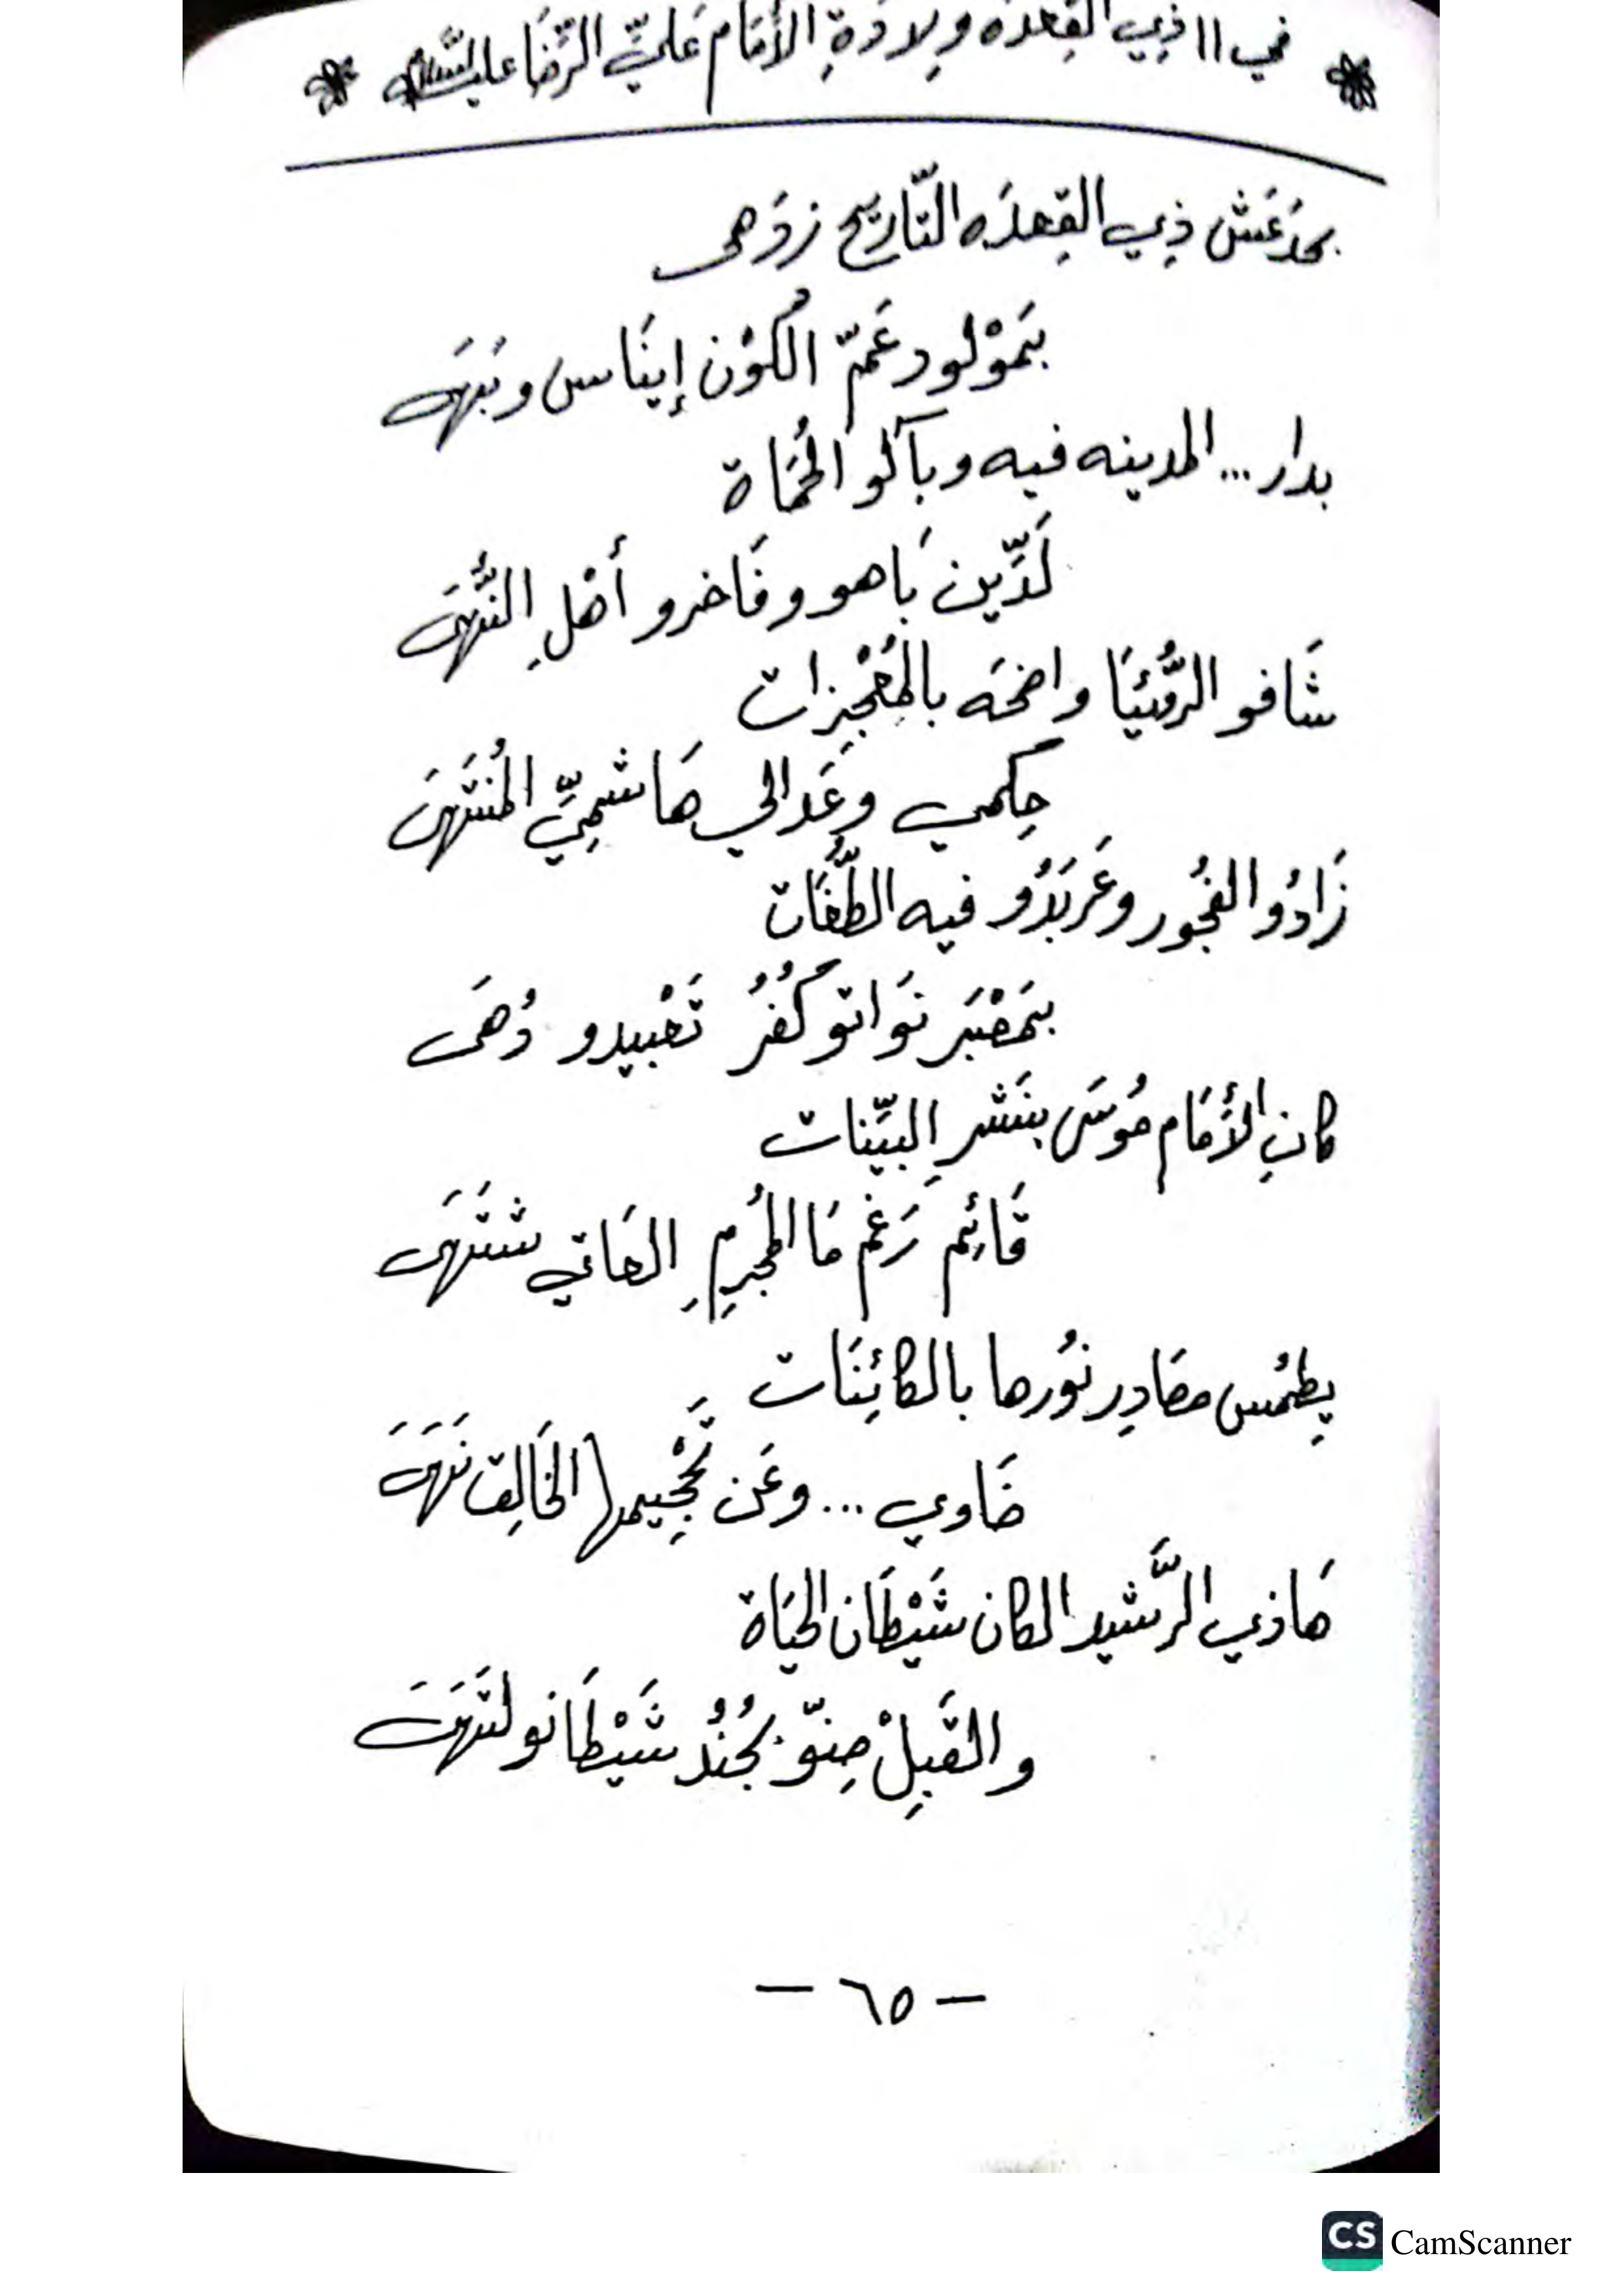 في ١١ ذِي القِعدَه وِلادَةِ الأمَام عَلِيِّ الرِّضَا عليه السَّلام
بحدَعَش ذِي القِعدَه التَّاريخ زدَهى
بمَوْلود عَمّ الكُوْن إينَاس وبَهَى
بدار... المدينه فيه وبآلو الحُمَاة
لَدِّين بَاهو وفَاخرو أهْلِ النُّهَى
شَافو الرُّئيَا واضحَه بالمُعْجِزات
حِكمي وعَدالي هَاشمِيِّ المُنتَهَى
زَادُو الفجُور وعَربَدُو فيه الطُّغَات
بمَصْبَر نَواتو كُفُرُ تَعْبيدو دُهَى
كانِ الأمَام مُوسَى بنَشرِ البيِّنات
قَائِم رَغم مَا المُجرِمِ العَاتي شتَهَى
يِطمُس مصَادِر نوُرها بالكائِنَات
ضَاوي ... وعَن تَحْجِيمها الخَالِق نَهَى
هَاذي الرَّشيد الكان شَيْطَان الحيَاة
والقَبِلْ مِنّو بجُندُ شَيْطَانو لتَهَى
— ٦٥ —
CS CamScanner